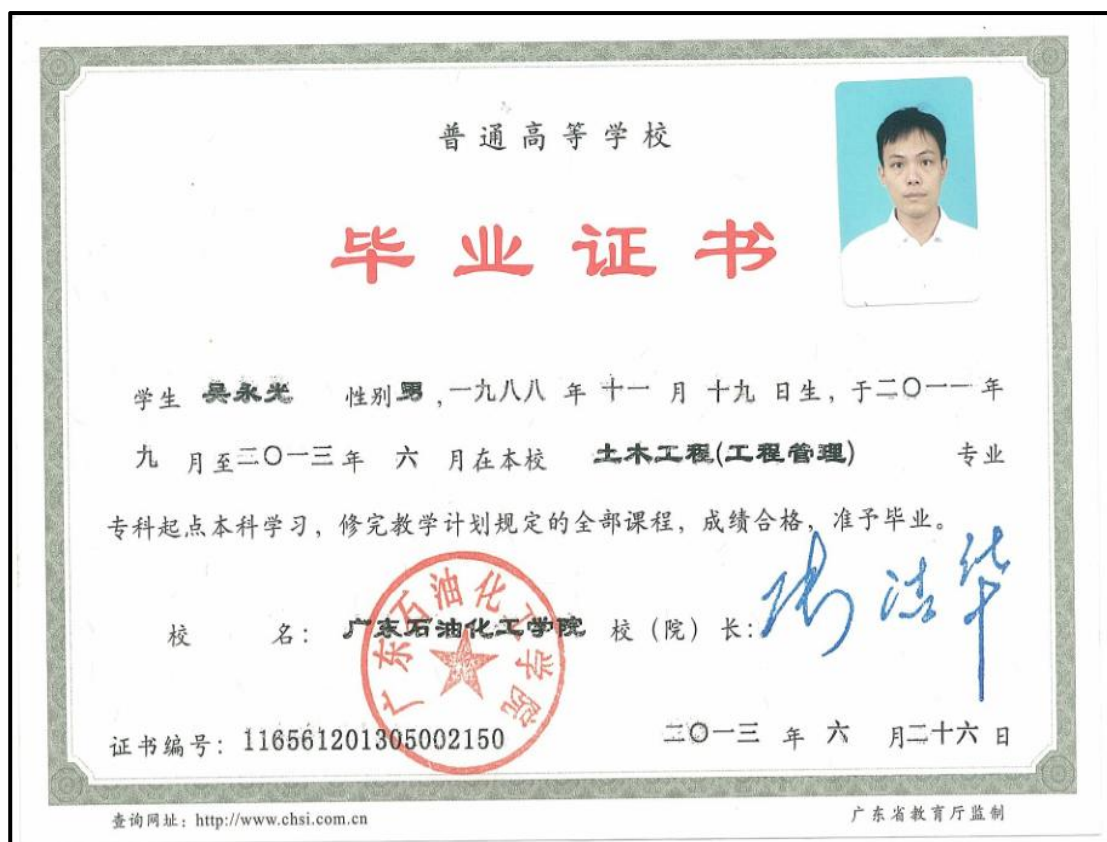 普通高等学校
毕业证书
学生 吴永光 性别男,一九八八 年 十一 月 十九 日生,于二〇一一年
九 月至二〇一三年 六 月在本校 土木工程(工程管理) 专业
专科起点本科学习,修完教学计划规定的全部课程,成绩合格,准予毕业。
校 名: 广东石油化工学院 校(院)长:
广东石油化工学院
证书编号: 116561201305002150
二〇一三 年 六 月二十六日
查询网址: http://www.chsi.com.cn
广东省教育厅监制